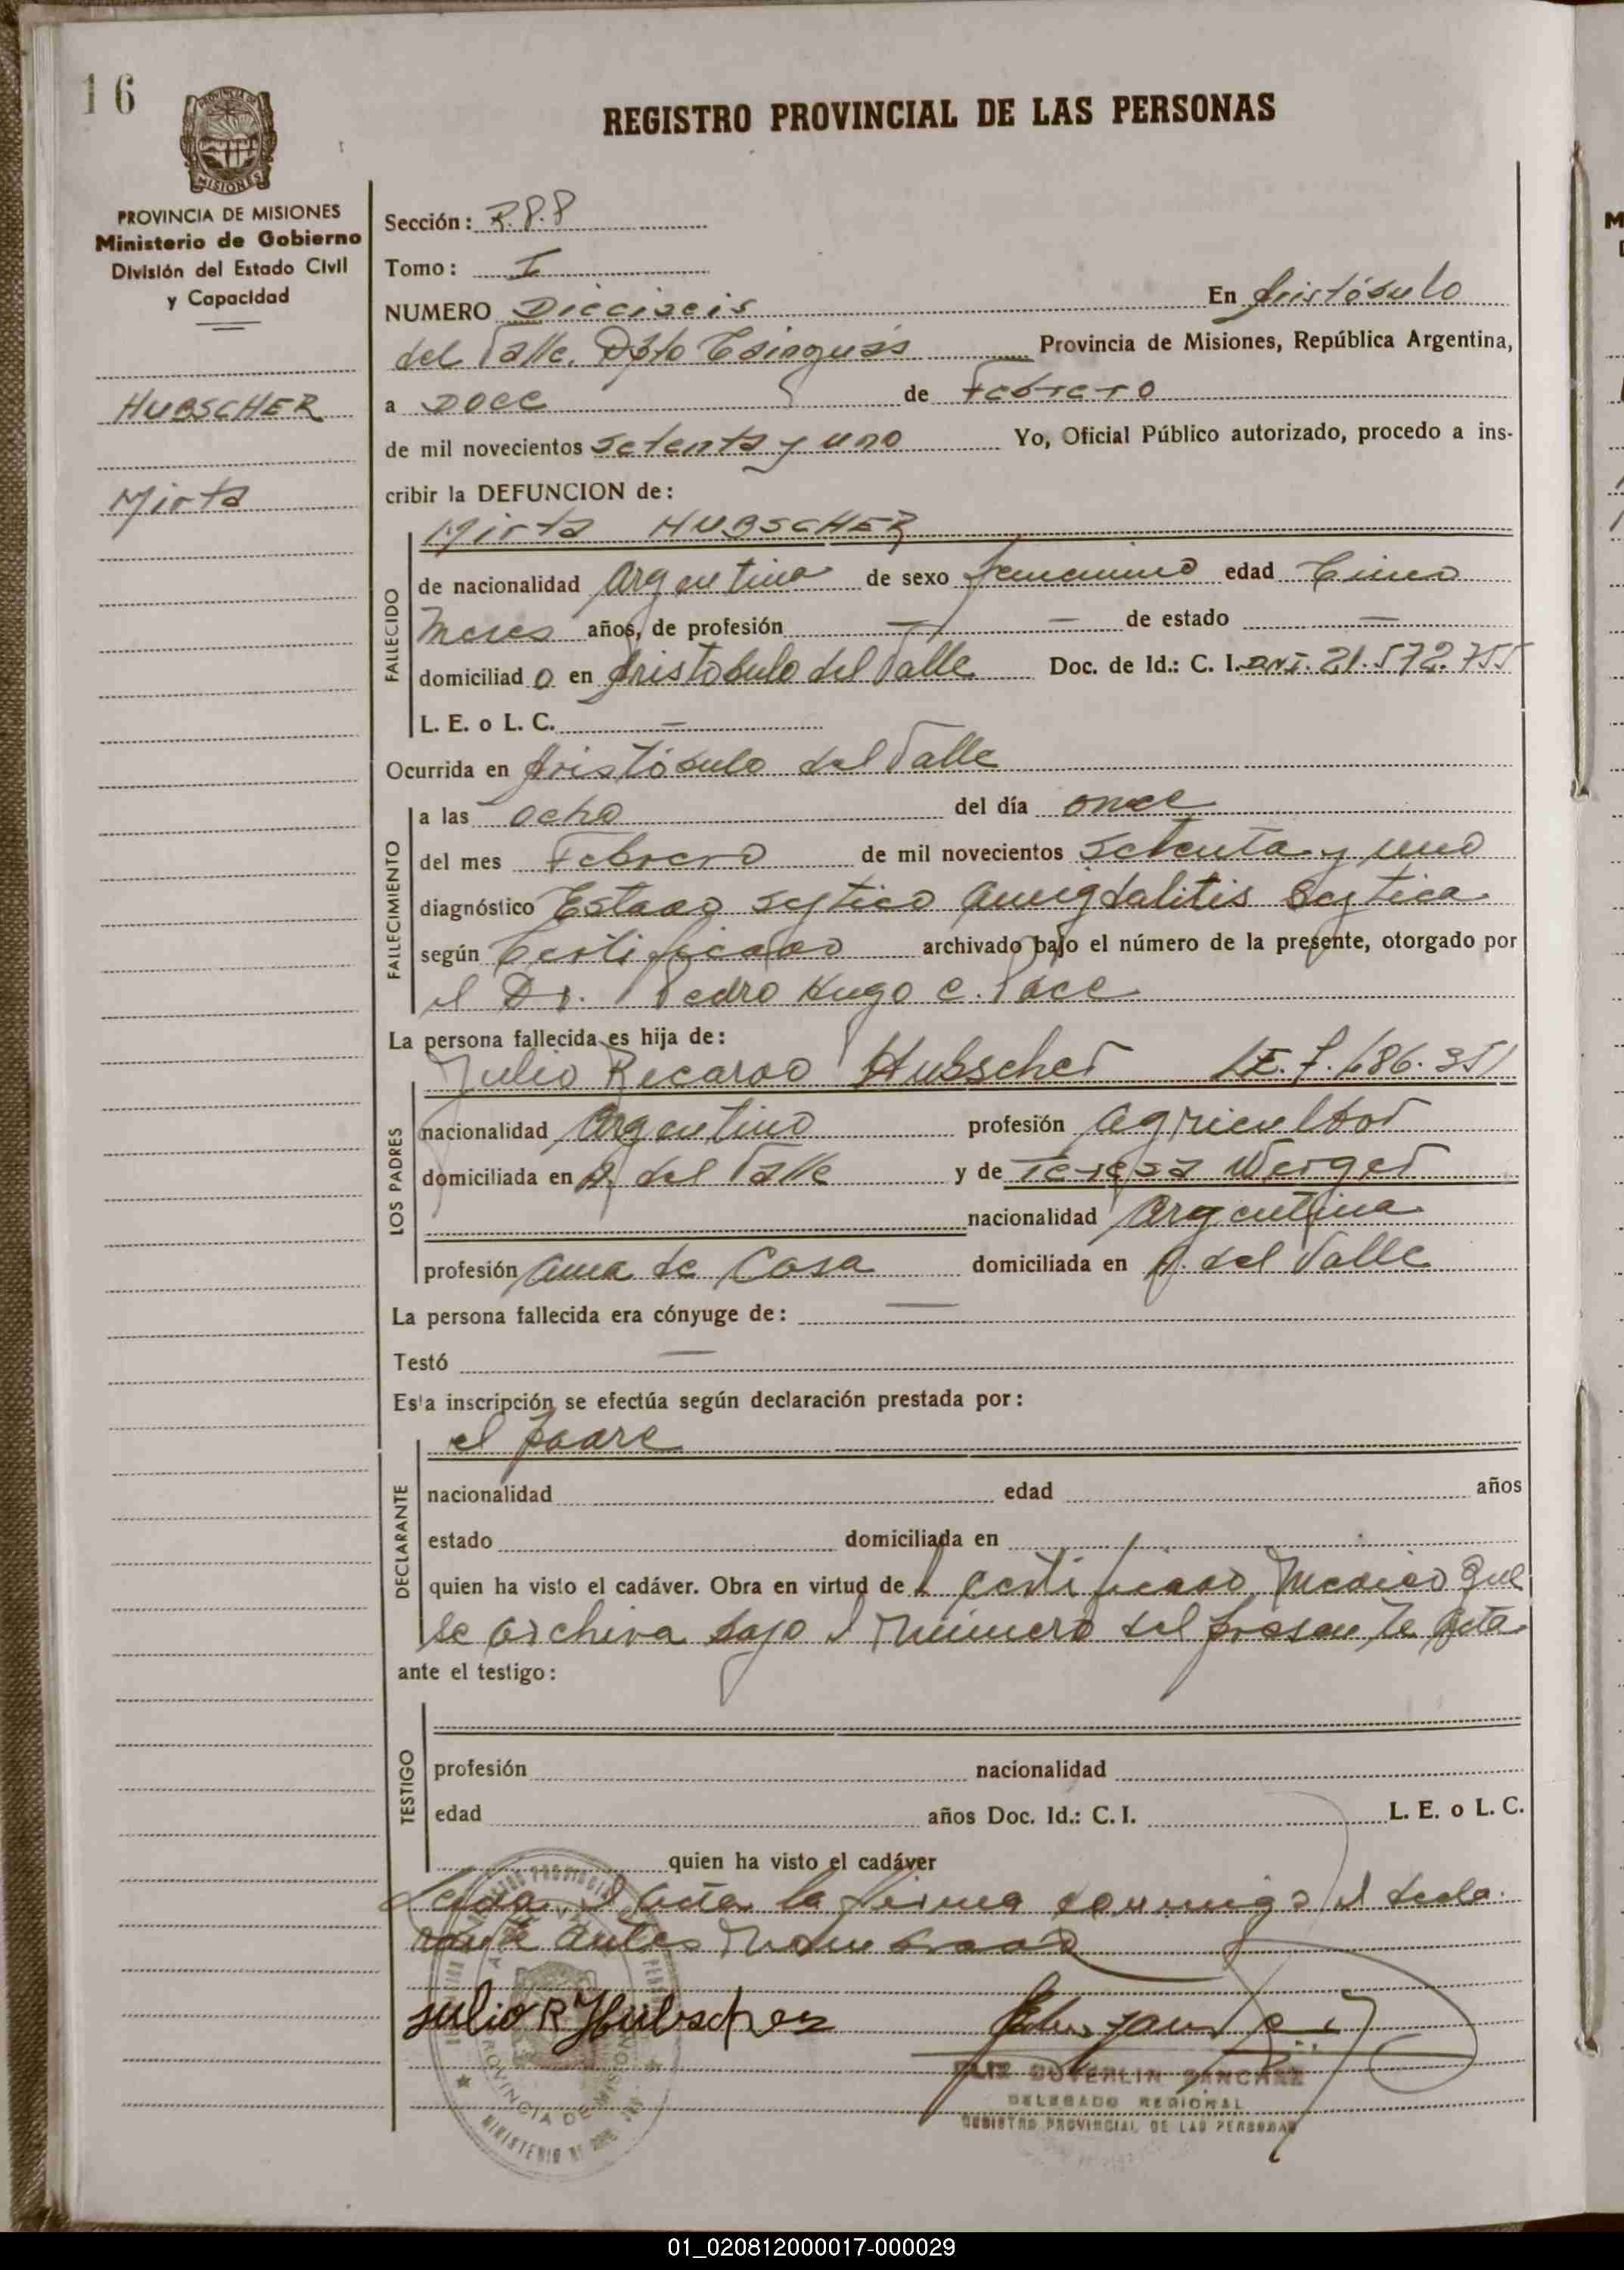 16
PROVINCIA DE
MISIONES
PROVINCIA DE MISIONES
Ministerio de Gobierno
División del Estado Civil
y Capacidad
HUBSCHER
Mirta
REGISTRO PROVINCIAL DE LAS PERSONAS
Sección: R.P.P
Tomo: I
NUMERO Dieciseis En Aristóbulo
del Valle. Dpto Cainguás Provincia de Misiones, República Argentina,
a Doce de Febrero
de mil novecientos setenta y uno Yo, Oficial Público autorizado, procedo a ins-
cribir la DEFUNCION de:
Mirta HUBSCHER
FALLECIDO
de nacionalidad Argentina de sexo femenino edad Cinco
meses años, de profesión — — de estado —
domiciliado en Aristobulo del Valle Doc. de Id.: C. I. DNI. 21.572.755
L. E. o L. C. —
Ocurrida en Aristóbulo del Valle
FALLECIMIENTO
a las ocho del día once
del mes Febrero de mil novecientos setenta y uno
diagnóstico Estado septico Amigdalitis Septica
según Certificado archivado bajo el número de la presente, otorgado por
el Dr. Pedro Hugo C. Pace
La persona fallecida es hija de:
LOS PADRES
Julio Ricardo Hubscher LE. 7.486.351
nacionalidad Argentino profesión agricultor
domiciliada en A. del Valle y de Teresa Werger
nacionalidad Argentina
profesión Ama de Casa domiciliada en A. del Valle
La persona fallecida era cónyuge de: —
Testó —
Esta inscripción se efectúa según declaración prestada por:
DECLARANTE
el padre
nacionalidad edad años
estado domiciliada en
quien ha visto el cadáver. Obra en virtud de l certificado Medico que
se archiva bajo el Número del presente Acta
ante el testigo:
TESTIGO
profesión nacionalidad
edad años Doc. Id.: C. I. L. E. o L. C.
quien ha visto el cadáver
Leida el Acta la firma conmigo el decla-
rante antes Nombrado
Julio R Hubscher
SANCHEZ
DELEGADO REGIONAL
REGISTRO PROVINCIAL DE LAS PERSONAS
PROVINCIA DE MISIONES
01_020812000017-000029